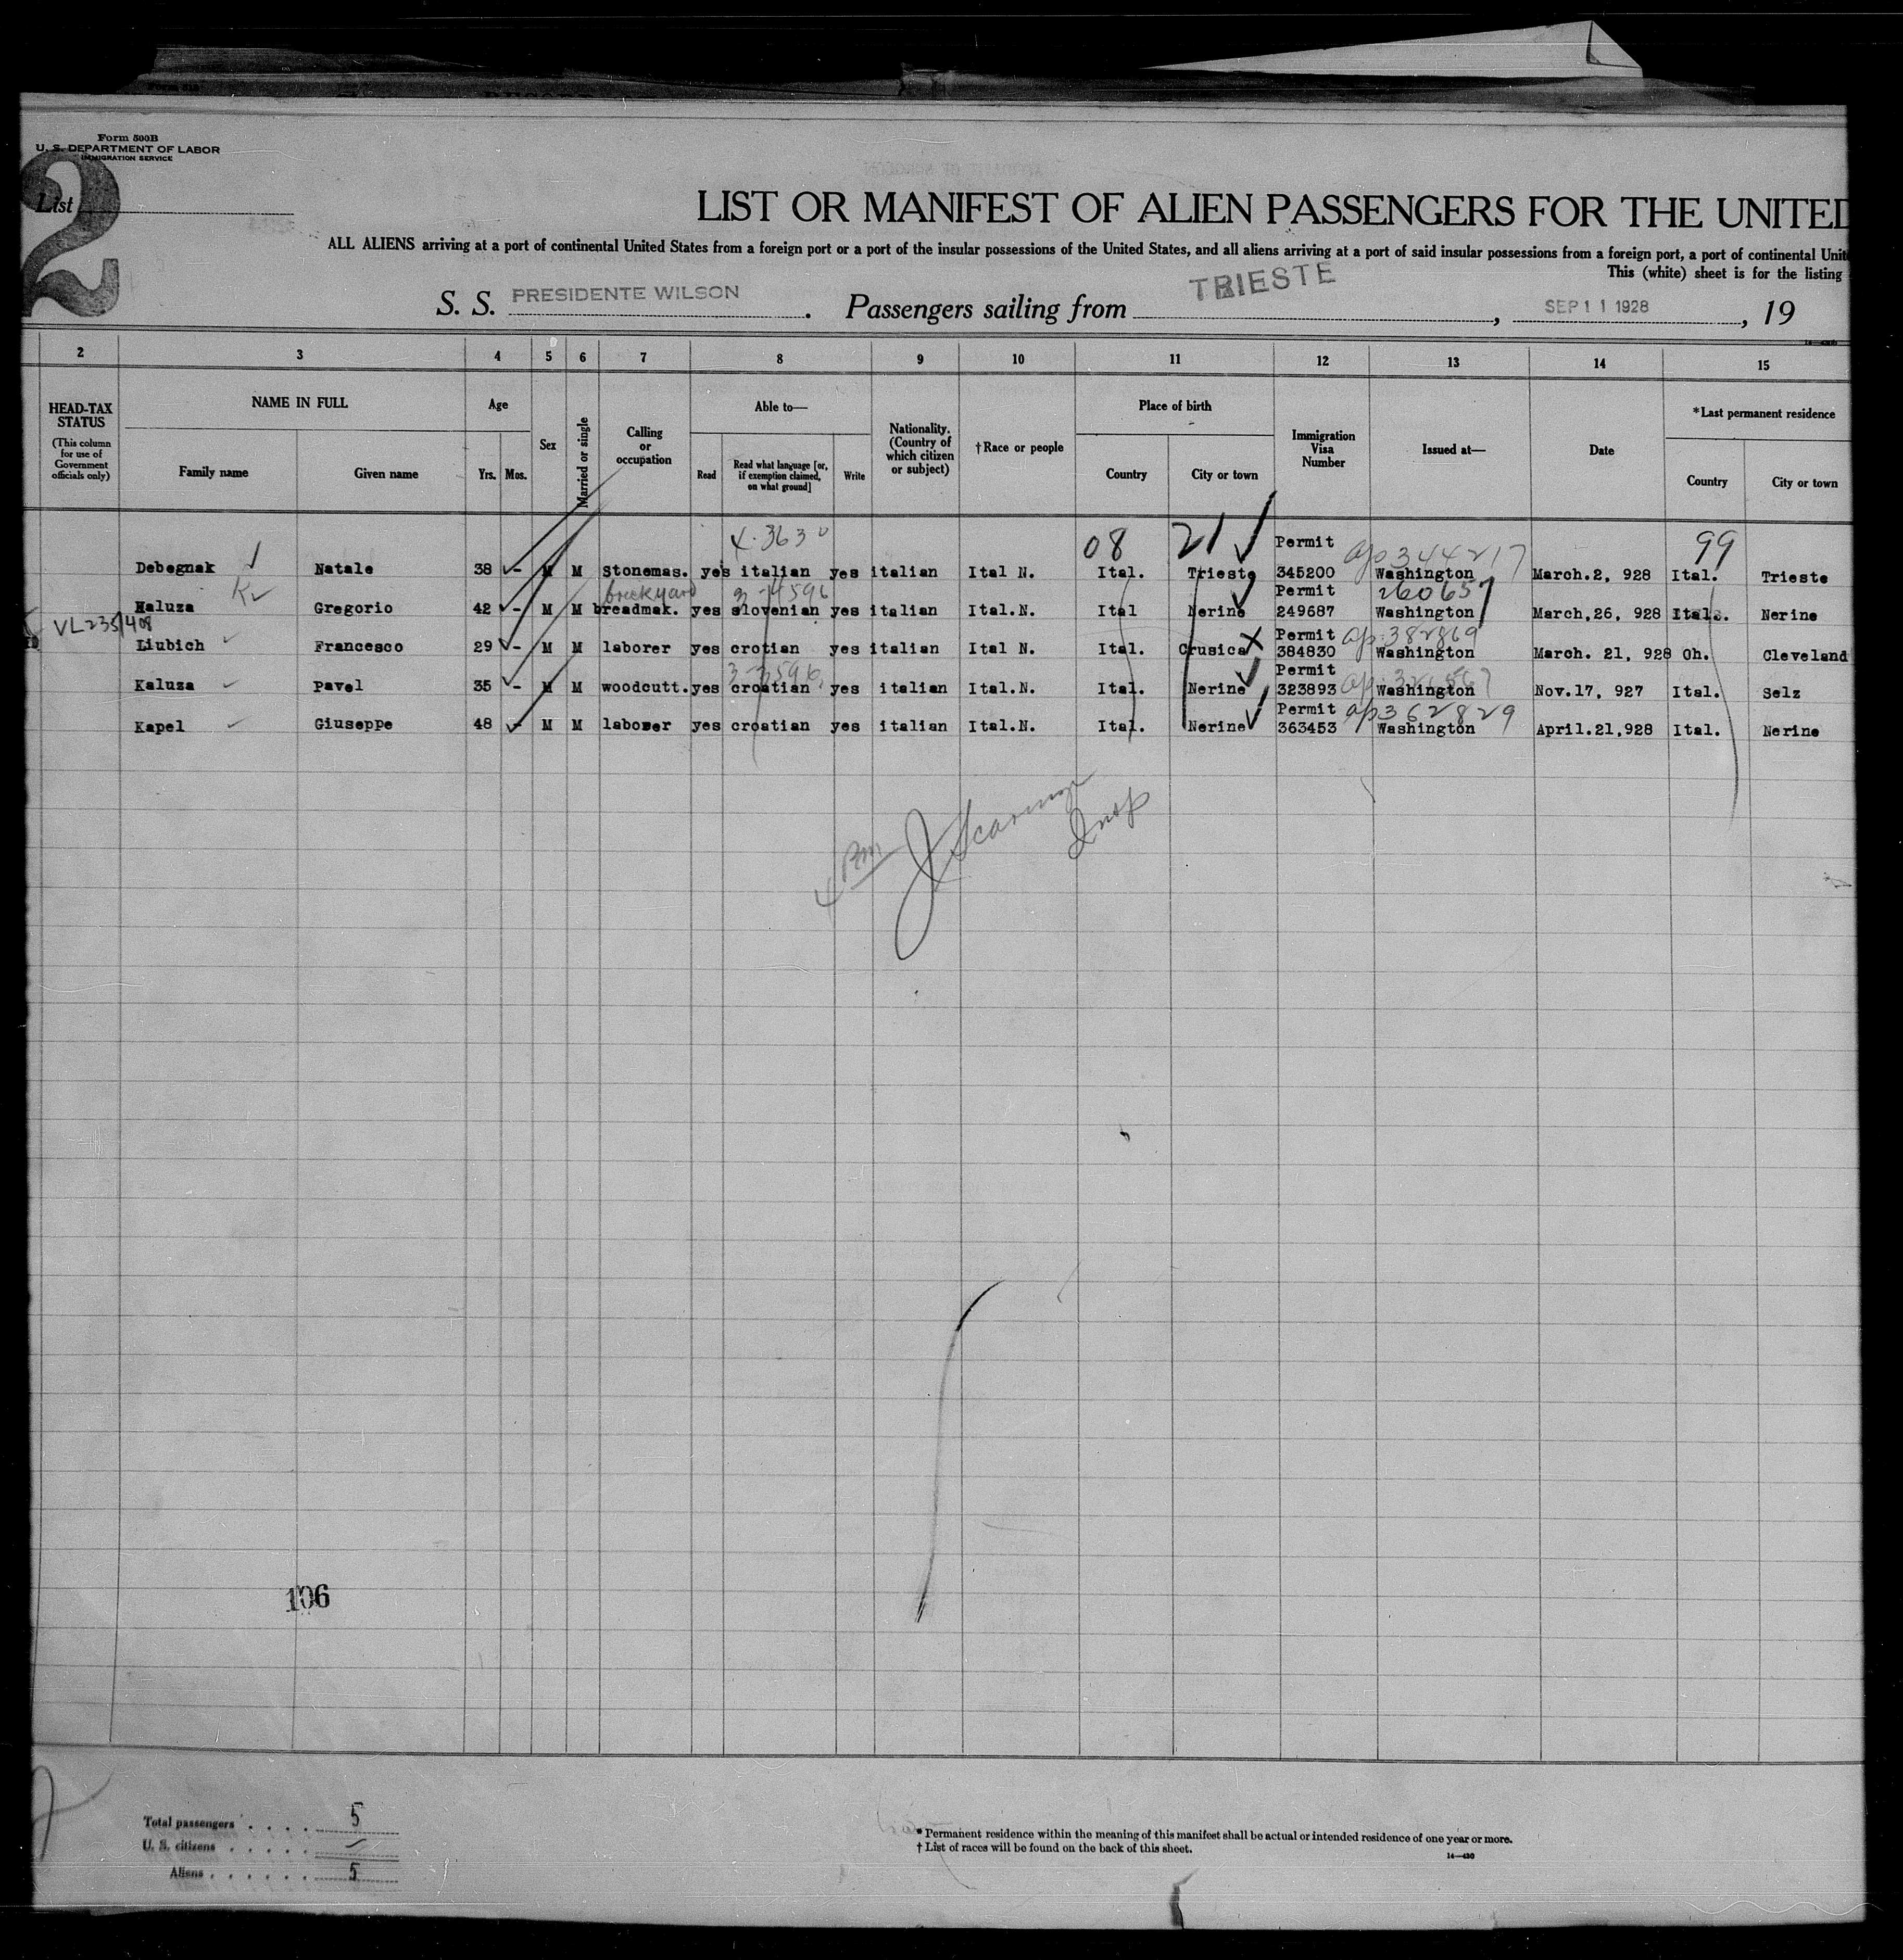 Form 500B
U. S. DEPARTMENT OF LABOR
IMMIGRATION SERVICE
2
List
LIST OR MANIFEST OF ALIEN PASSENGERS FOR THE UNITED
ALL ALIENS arriving at a port of continental United States from a foreign port or a port of the insular possessions of the United States, and all aliens arriving at a port of said insular possessions from a foreign port, a port of continental Unit
This (white) sheet is for the listing
S. S. PRESIDENTE WILSON. Passengers sailing from TRIESTE, SEP 11 1928, 19
2 3 4 5 6 7 8 9 10 11 12 13 14 15
HEAD-TAX STATUS (This column for use of Government officials only)
NAME IN FULL
Family name Given name
Age
Yrs. Mos.
Sex
Married or single
Calling or occupation
Able to—
Read Read what language [or, if exemption claimed, on what ground] Write
Nationality. (Country of which citizen or subject)
†Race or people
Place of birth
Country City or town
Immigration Visa Number
Issued at—
Date
*Last permanent residence
Country City or town
4-3630 08 21 Permit ap 344217 99
Debegnak Natale 38 - M M Stonemas. yes italian yes italian Ital N. Ital. Trieste 345200 Washington March.2, 928 Ital. Trieste
brickyard 3-4596 Permit 260657
Kaluza Gregorio 42 - M M breadmak. yes slovenian yes italian Ital.N. Ital Nerine 249687 Washington March,26, 928 Ital. Nerine
VL 235/408 Permit ap. 382869
Liubich Francesco 29 - M M laborer yes crotian yes italian Ital N. Ital. Crusica 384830 Washington March. 21, 928 Oh. Cleveland
Permit
Kaluza Pavel 35 - M M woodcutt. yes croatian yes italian Ital.N. Ital. Nerine 323893 Washington Nov.17, 927 Ital. Selz
Permit ap 362829
Kapel Giuseppe 48 - M M laborer yes croatian yes italian Ital.N. Ital. Nerine 363453 Washington April.21,928 Ital. Nerine
Insp
106
Total passengers 5
U. S. citizens –
Aliens 5
* Permanent residence within the meaning of this manifest shall be actual or intended residence of one year or more.
† List of races will be found on the back of this sheet.
14—430